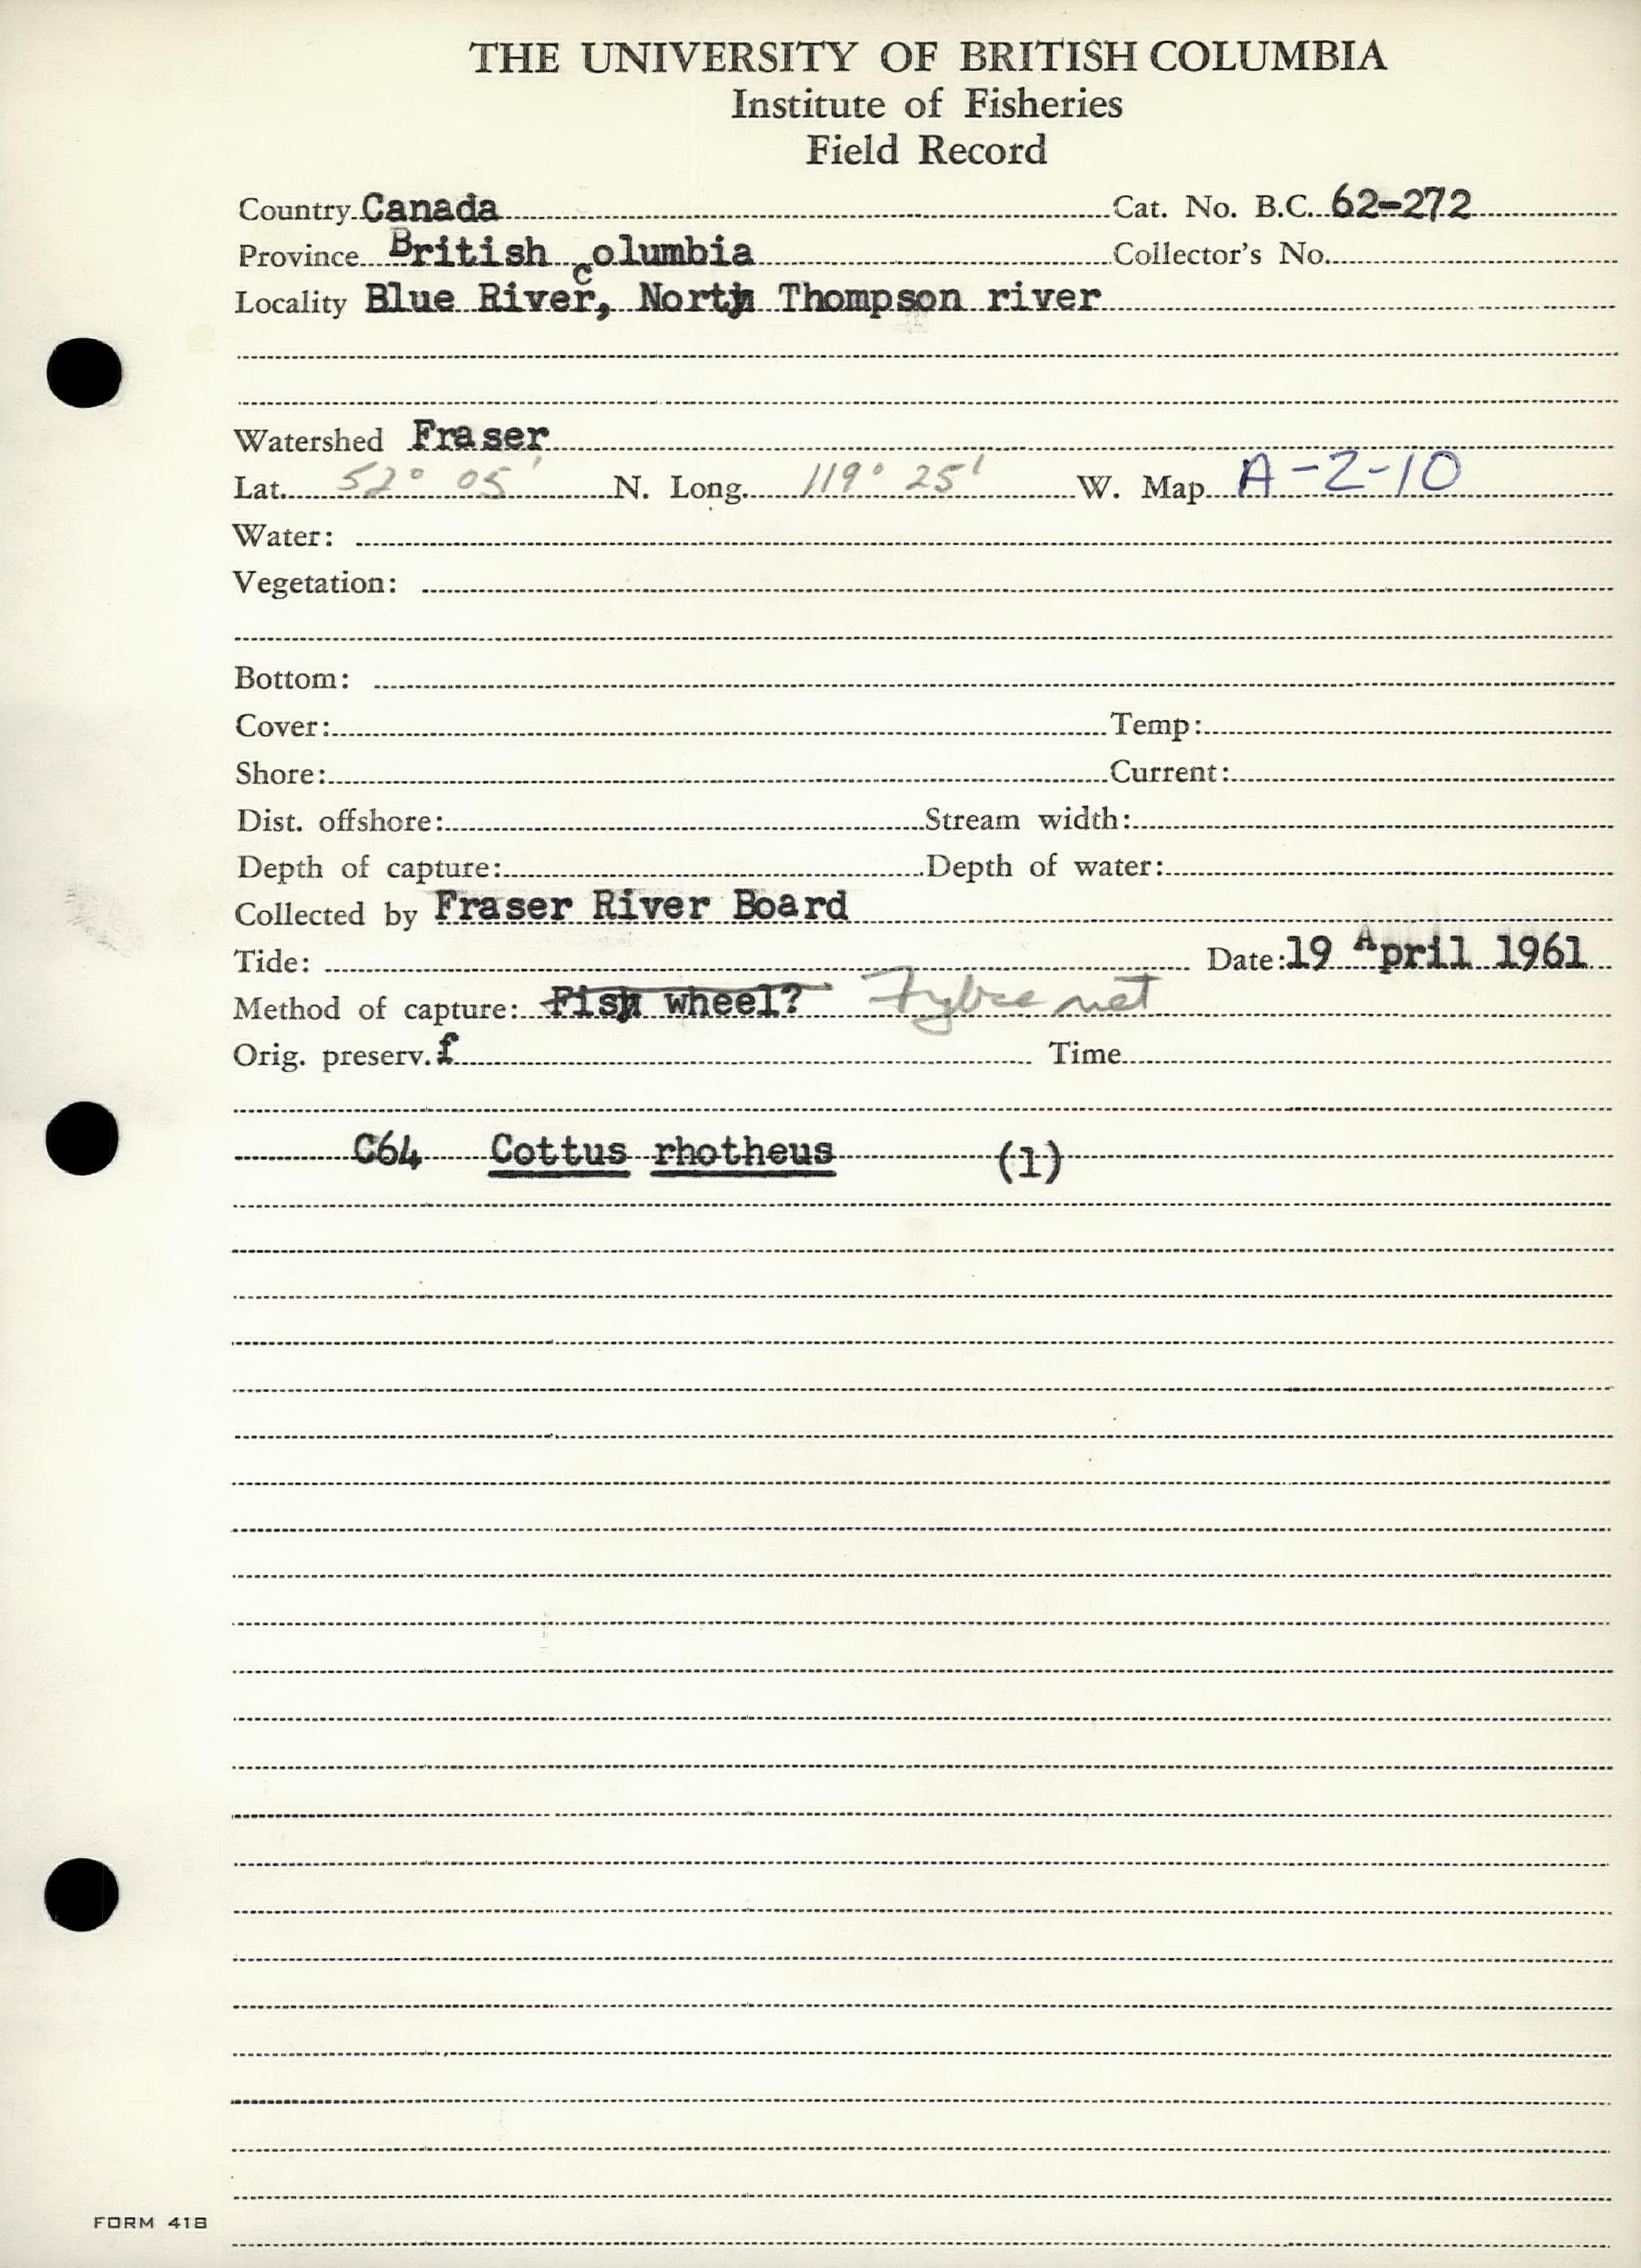 THE UNIVERSITY OF BRITISH COLUMBIA
Institute of Fisheries
Field Record
Country Canada Cat. No. B.C. 62-272
Province British columbia Collector's No.
Locality Blue River, North Thompson river
Watershed Fraser
Lat. 52° 05' N. Long. 119° 25' W. Map A-2-10
Water:
Vegetation:
Bottom:
Cover: Temp:
Shore: Current:
Dist. offshore: Stream width:
Depth of capture: Depth of water:
Collected by Fraser River Board
Tide: Date: 19 April 1961
Method of capture: Fish wheel? Fybre net
Orig. preserv. f Time
C64 Cottus rhotheus (1)
FORM 418